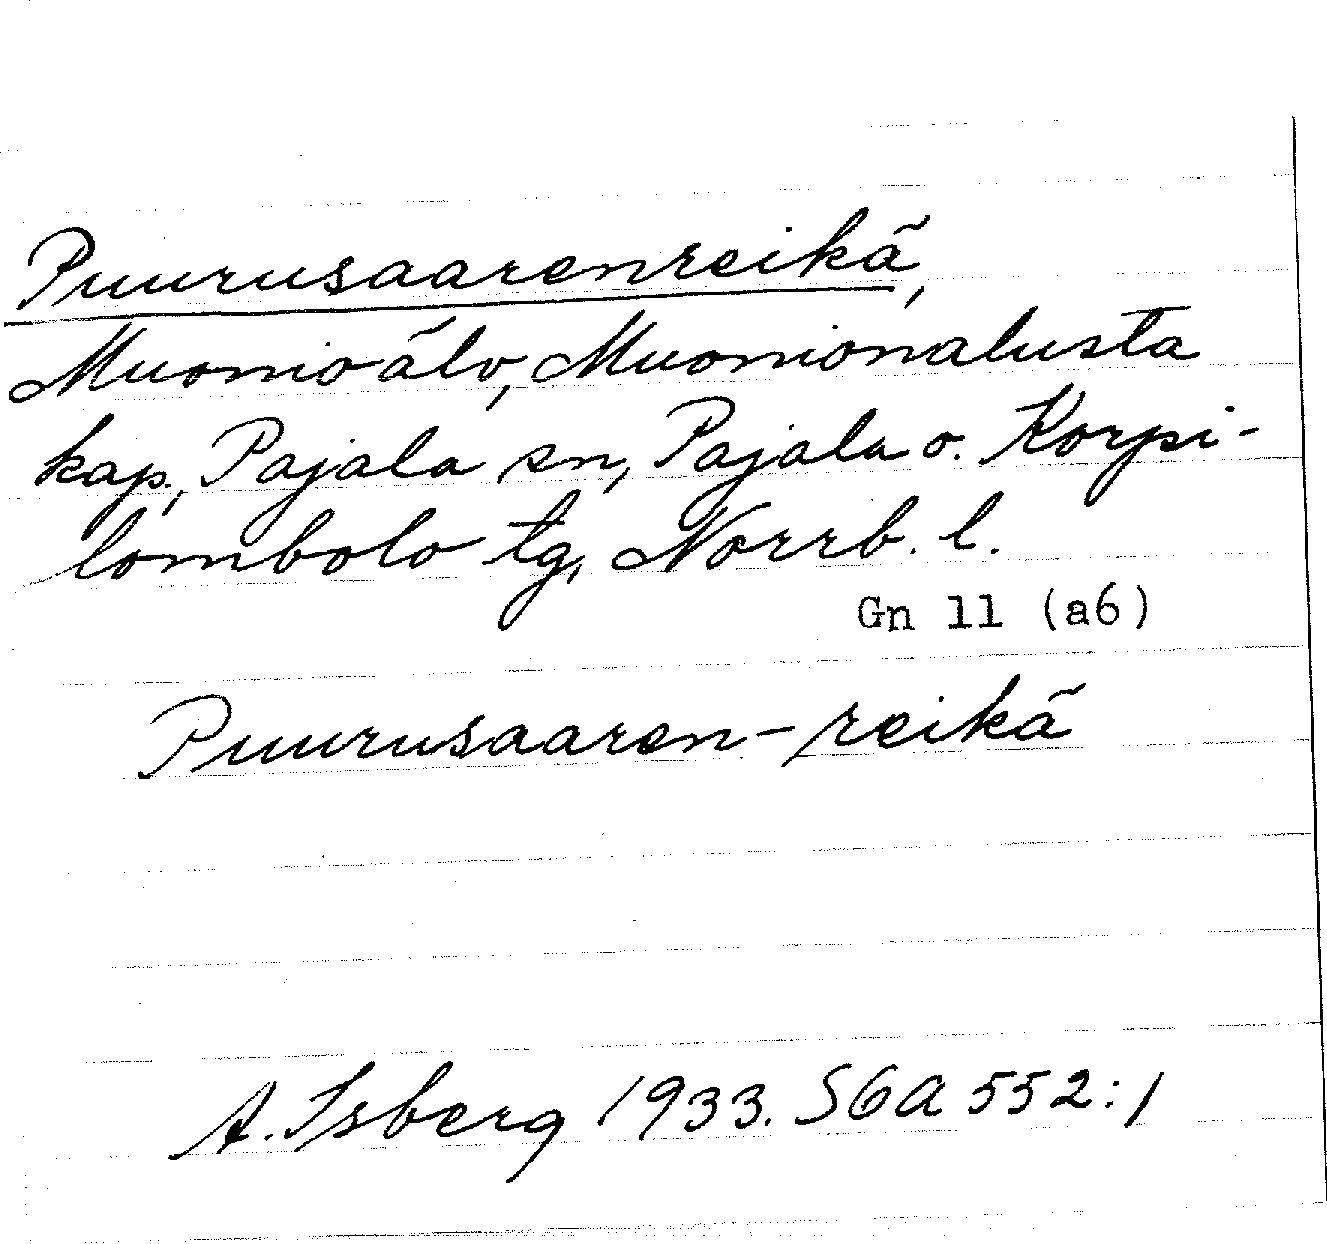 Puurusaarenreikä,
Muonio älv, Muonionalusta
kap., Pajala sn, Pajala o. Korpi-
lombolo tg, Norrb. l.
Gn 11 (a6)
Puurusaaren-reikä
A. Isberg 1933. SGA 552:1